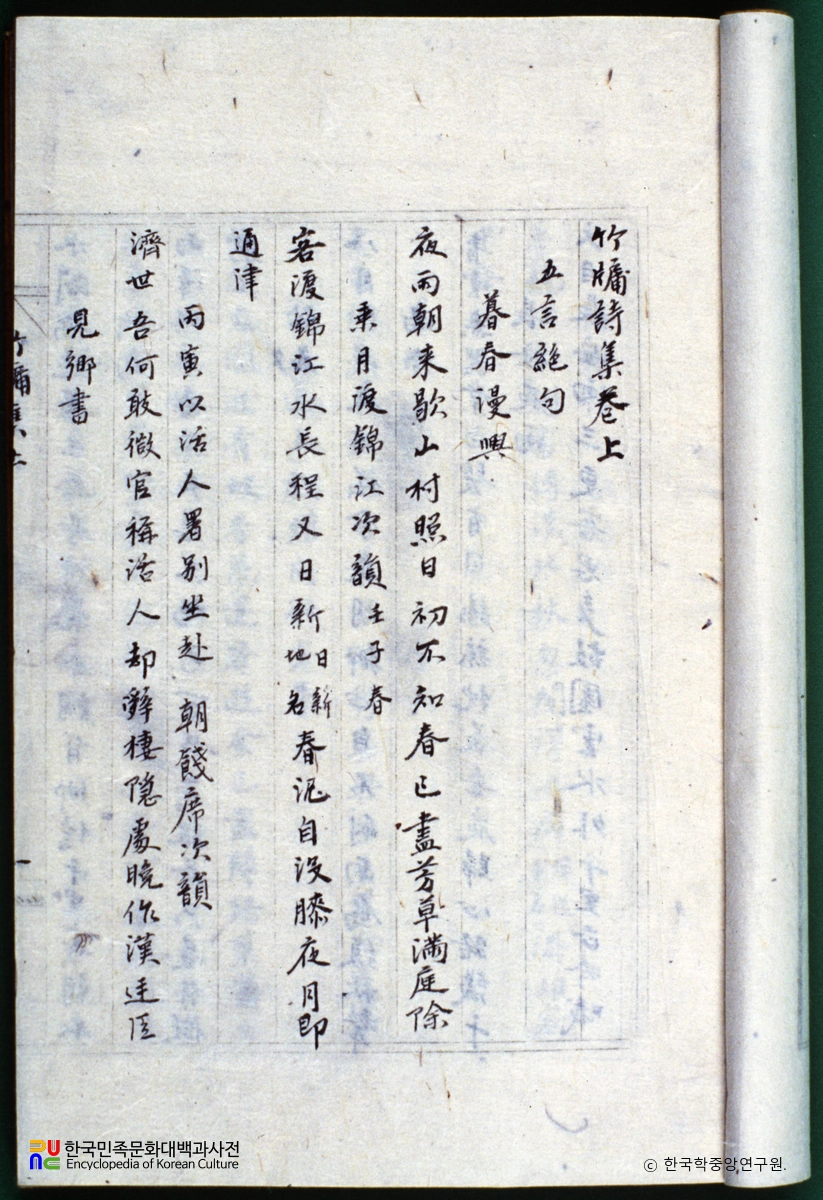 竹牖詩集卷上
五言絕句
暮春謾興
夜雨朝来歇山村照日初不知春已盡芳草滿庭除
乘月渡錦江次韻壬子春
客渡錦江水長程又日新日新地名春泥自没膝夜月即
通津
丙寅以活人署别坐赴朝餞席次韻
濟世吾何敢微官稱活人却辭棲隐處晚作漢廷臣
見鄉書
竹牖集上
한국민족문화대백과사전
Encyclopedia of Korean Culture
ⓒ 한국학중앙연구원.